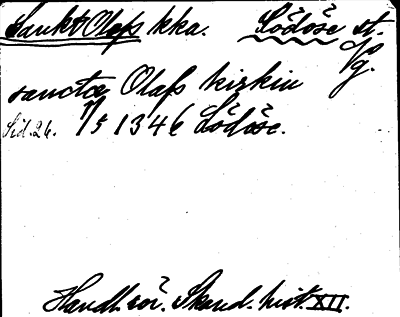 Sankt Olofs kka. Lödöse st.
Vg.
sancta Olafs kirkiu
Sid. 26. 7/5 1346 Lödöse.
Handl. rör. Skand. hist. XII.